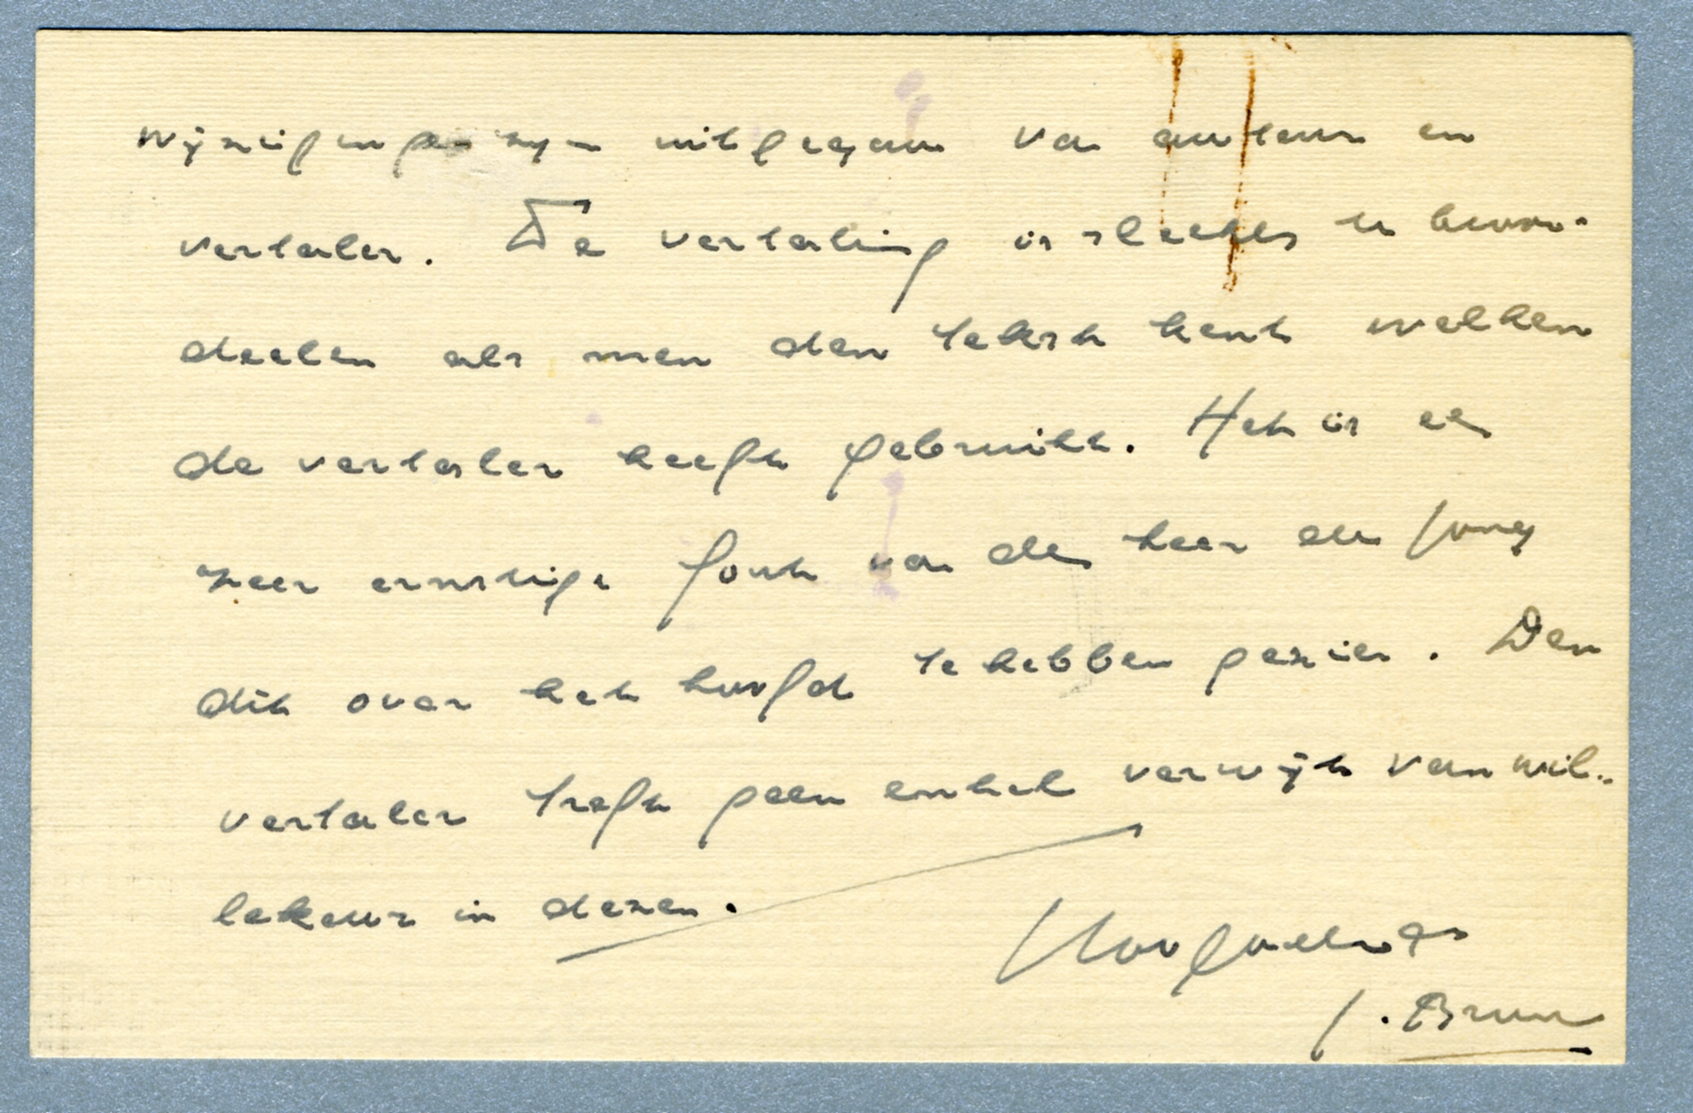 wijzigingen zijn uitgegaan van auteur en
vertaler. De vertaling is slechts te beoor-
deelen als men den tekst kent welken
de vertaler heeft gebruikt. Het is een
zeer ernstige fout van den heer de Jong
dit over het hoofd te hebben gezien. Den
vertaler treft geen enkel verwijt van wil-
lekeur in dezen.
Hoogachtend
J. Brouwer